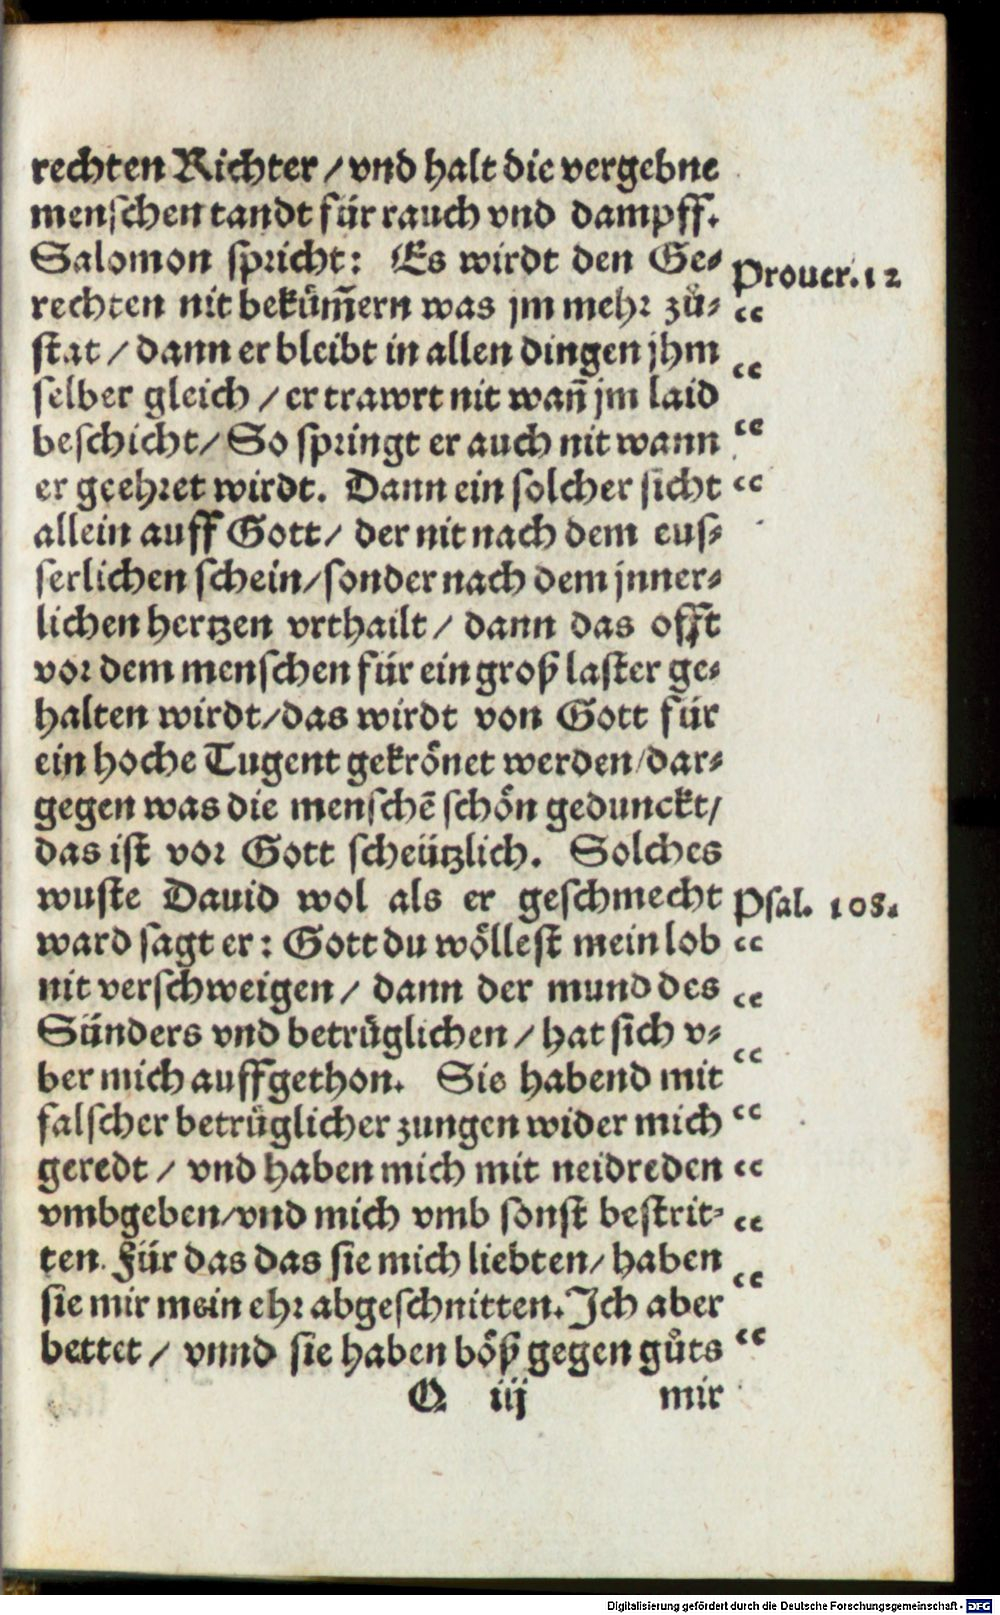 rechten Richter / vnd halt die vergebne
menschen tandt für rauch vnd dampff.
Salomon spricht: Es wirdt den Ge⸗ Prouer. 12
rechten nit bekům̃ern was jm mehr zů⸗
stat / dann er bleibt in allen dingen jhm
selber gleich / er trawrt nit wañ jm laid
beschicht / So springt er auch nit wann
er geehret wirdt. Dann ein solcher sicht
allein auff Gott / der nit nach dem eus⸗
serlichen schein / sonder nach dem jnner⸗
lichen hertzen vrthailt / dann das offt
vor dem menschen für ein groß laster ge⸗
halten wirdt / das wirdt von Gott für
ein hoche Tugent gekrönet werden / dar⸗
gegen was die menschē schön gedunckt /
das ist vor Gott scheützlich. Solches
wuste Dauid wol als er geschmecht Psal. 108.
ward sagt er: Gott du wöllest mein lob
nit verschweigen / dann der mund des
Sünders vnd betrüglichen / hat sich v⸗
ber mich auffgethon. Sie habend mit
falscher betrüglicher zungen wider mich
geredt / vnd haben mich mit neidreden
vmbgeben / vnd mich vmb sonst bestrit⸗
ten. Für das das sie mich liebten / haben
sie mir mein ehr abgeschnitten. Ich aber
bettet / vnnd sie haben böß gegen gůts
Q iij mir
Digitalisierung gefördert durch die Deutsche Forschungsgemeinschaft - DFG